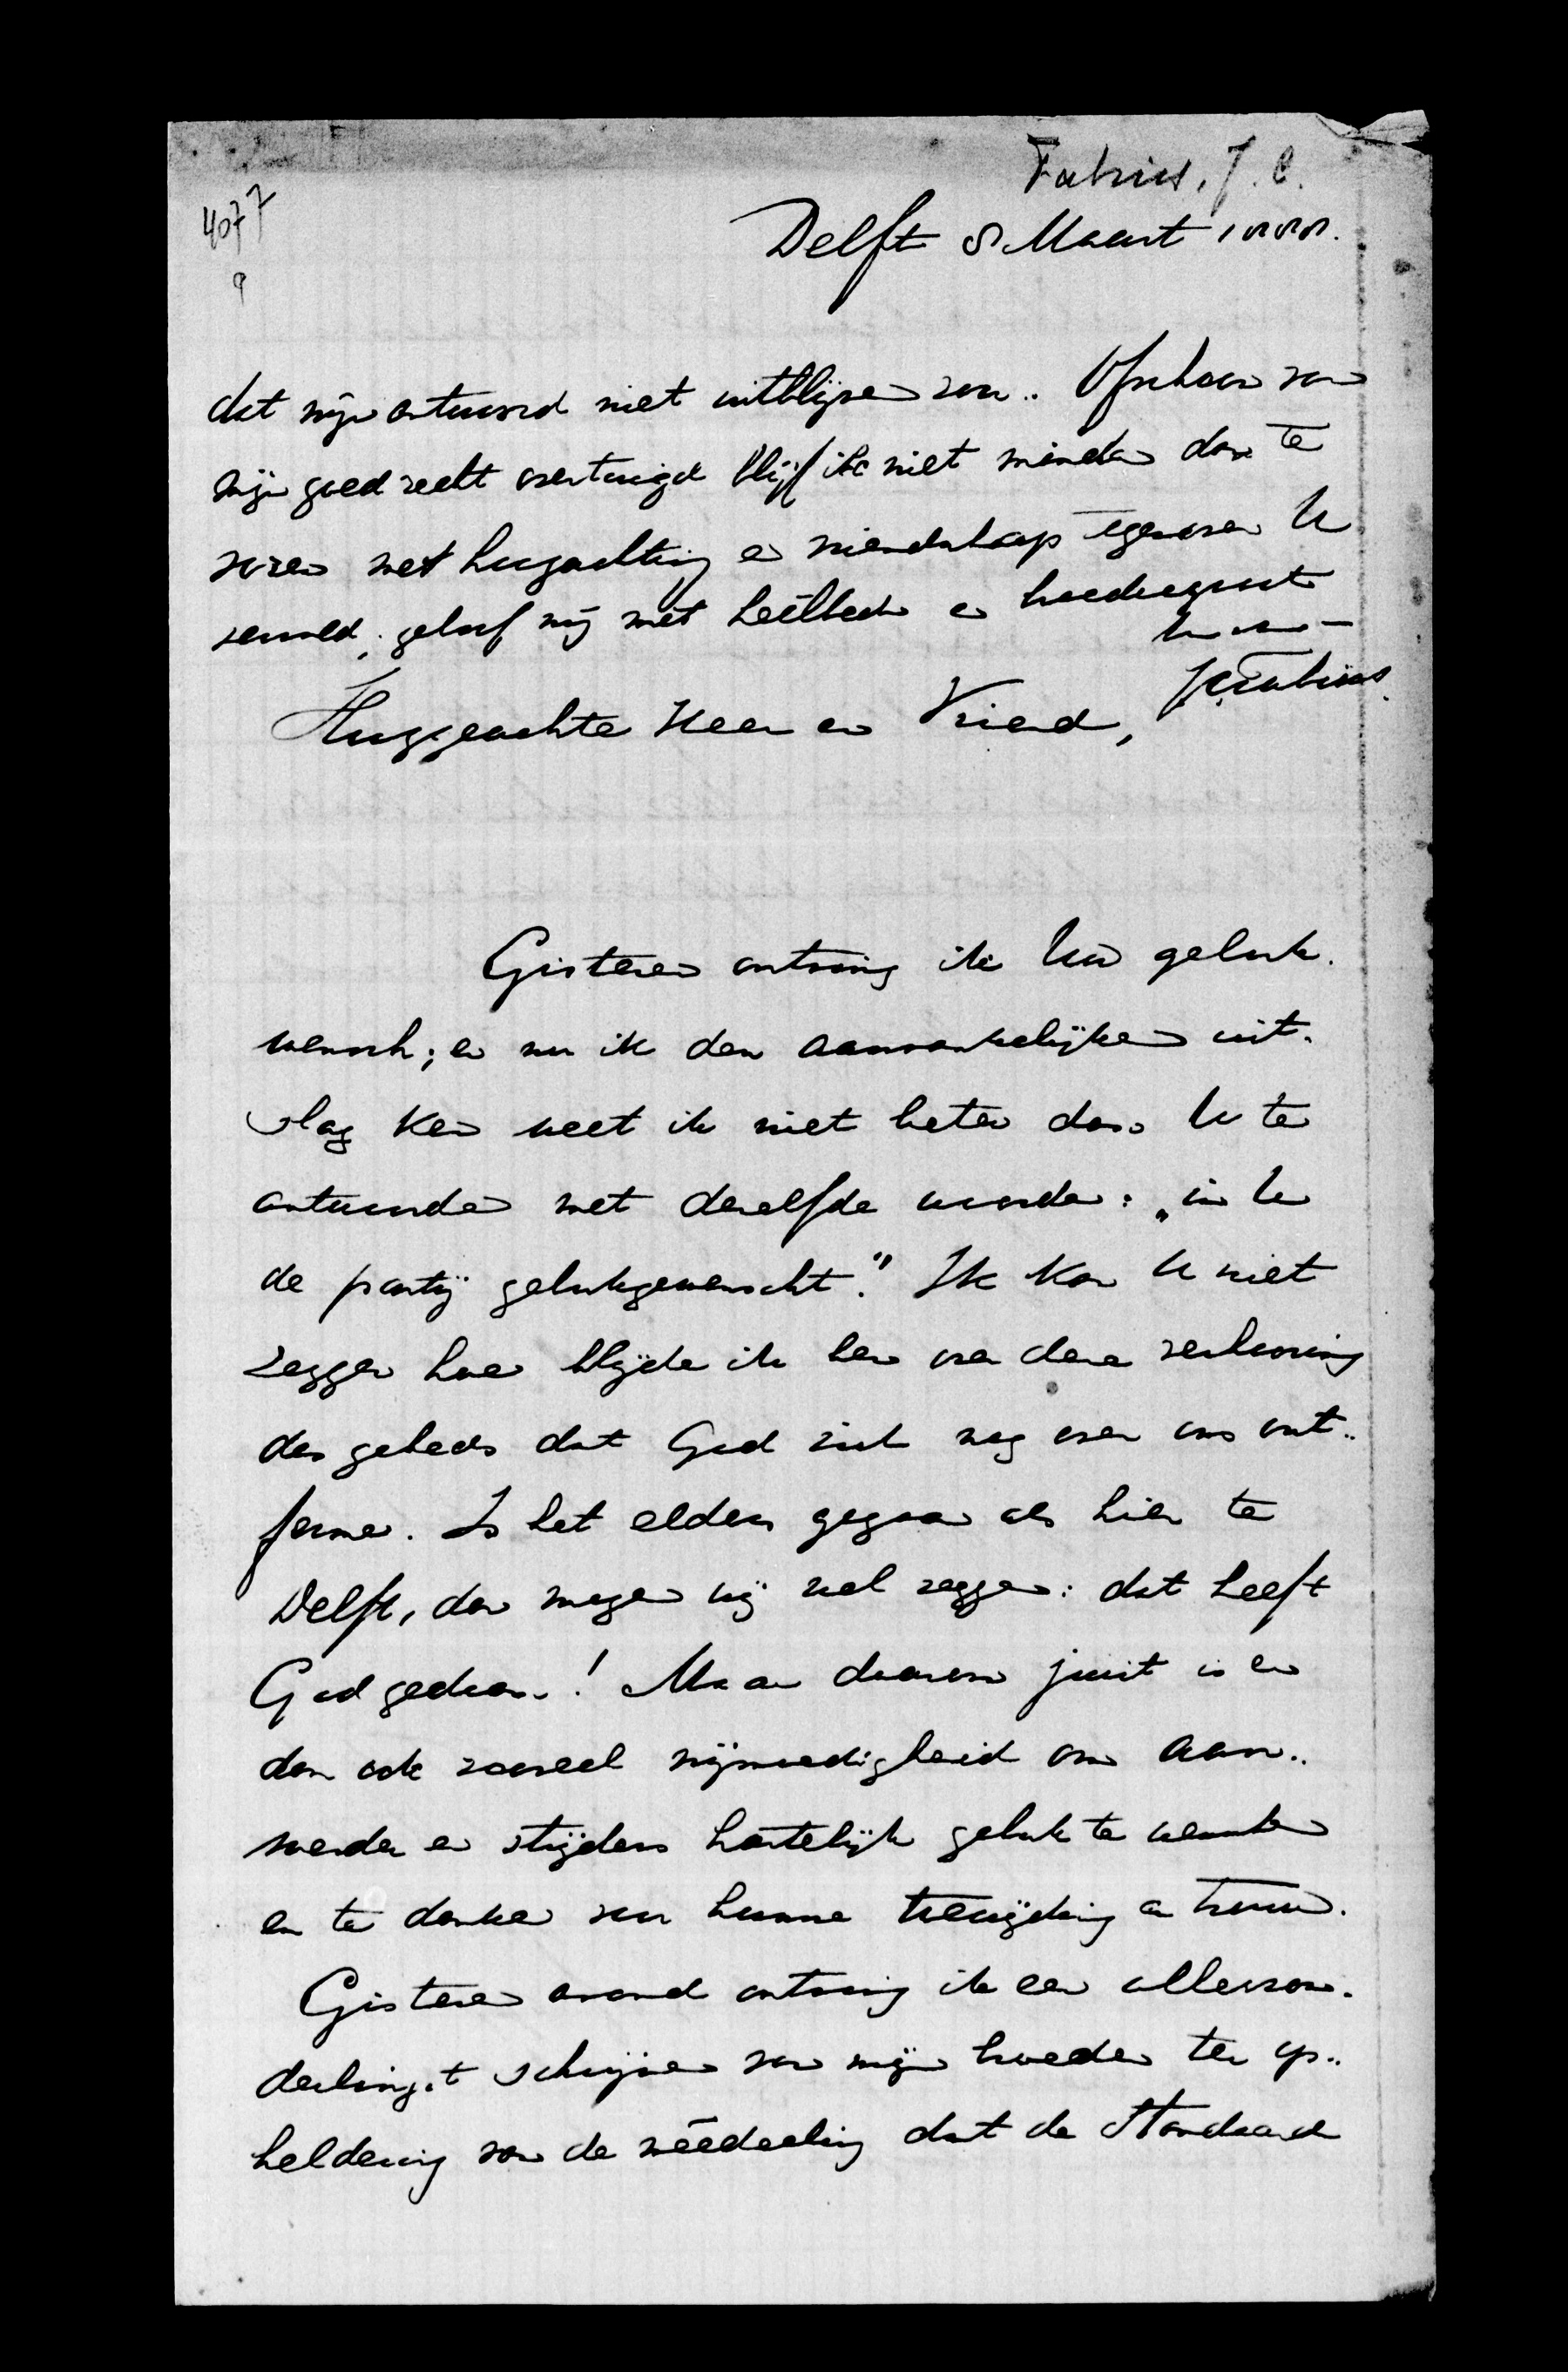 Fabius, J. C.
4077
Delft 8 Maart 1888.
dat mijn antwoord niet uitblijven zou. Ofschoon van
mijn goed recht overtuigd blijf ik niet minder dan te
voren met hoogachting en vriendschap tegenover U
vervuld; geloof mij met heilbede en broedergroet
Jc Fabius
Hooggeachte Heer en Vriend,
Gisteren ontving ik Uw geluk-
wensch; en nu ik den aanvankelijken uit-
slag ken weet ik niet beter dan U te
antwoorden met dezelfde woorden: „in U
de partij gelukgewenscht." Ik kan U niet
zeggen hoe blijde ik ben over deze verhooring
des gebeds dat God zich nog over ons ont-
ferme. Is het elders gegaan als hier te
Delft, dan mogen wij wel zeggen: dat heeft
God gedaan! Maar daarom juist is er
dan ook zooveel vrijmoedigheid om aan-
voerder en strijders hartelijk geluk te wenschen
en te danken voor hunne toewijding en trouw.
Gisteren avond ontving ik een allerzon-
derlingst schrijven van mijn broeder ter op-
heldering van de meedeeling dat de Standaard